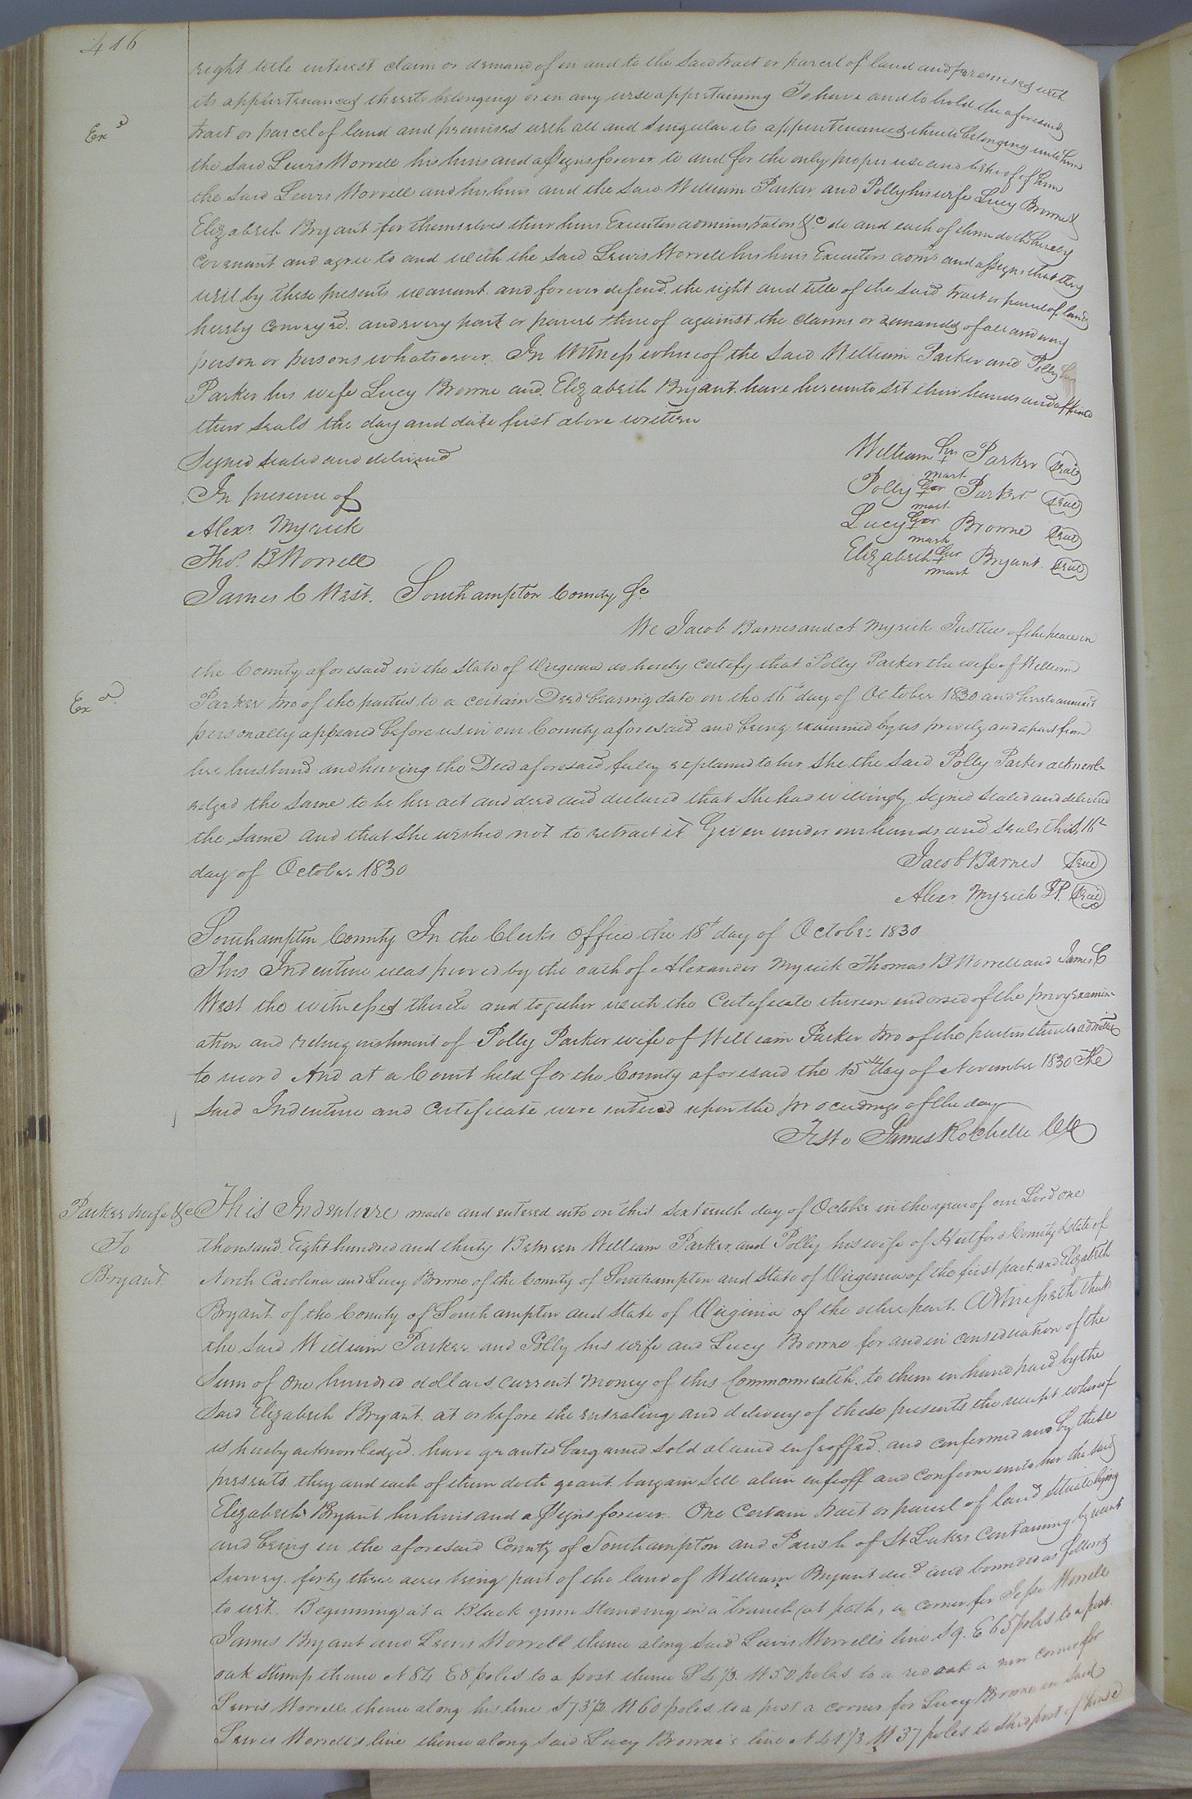 416
right title interest claim or demand of in and to the said tract or parcel of land and premises with
its appurtenances thereto belonging or in any wise appertaining To have and to hold the aforesaid
Exd
tract or parcel of land and premises with all and singular its appurtenances thereto belonging unto him
the said Lewis Worrell his heirs and assigns forever to and for the only proper use and behoof of him
the said Lewis Worrell and his heirs and the said William Parker and Polly his wife Lucy Browne &
Elizabeth Bryant for themselves their heirs Executors administrators &c do and each of them doth hereby
covenant and agree to and with the said Lewis Worrell his heirs Executors adms and assigns that they
will by these presents warrant and forever defend the right and title of the said tract or parcel of land
hereby conveyed and every part or parcel thereof against the claims or demands of all and every
person or persons whatsoever. In Witness whereof the said William Parker and Polly
Parker his wife Lucy Browne and Elizabeth Bryant have hereunto set their hands and affixed
their seals the day and date first above written
Signed sealed and delivered
In presence of
Alexr. Myrick
Thos. B Worrell
James C West.
William his + mark Parker Seal
Polly her + mark Parker Seal
Lucy her + mark Browne Seal
Elizabeth her + mark Bryant Seal
Southampton County Sc
We Jacob Barnes and A Myrick Justices of the peace in
the County aforesaid in the State of Virginia do hereby certify that Polly Parker the wife of William
Exd
Parker two of the parties to a certain Deed bearing date on the 16th day of October 1830 and hereto annexed
personally appeared before us in our County aforesaid and being examined by us privily and apart from
her husband and having the Deed aforesaid fully explained to her She the said Polly Parker acknowl-
edged the same to be her act and deed and declared that she had willingly signed sealed and delivered
the same and that she wished not to retract it Given under our hands and seals this 16th
day of October 1830
Jacob Barnes Seal
Alexr Myrick JP. Seal
Southampton County In the Clerks Office the 18th day of October 1830
This Indenture was proved by the oath of Alexander Myrick Thomas B Worrell and James C
West the witnesses thereto and together with the Certificate thereon endorsed of the privy examin-
ation and relinquishment of Polly Parker wife of William Parker two of the parties thereto admitted
to record And at a Court held for the County aforesaid the 15th day of November 1830 The
said Indenture and Certificate were entered upon the proceedings of the day
Teste James Rochelle CC
Parker & wife &c
To
Bryant
This Indenture made and entered into on this sixteenth day of October in the year of our Lord one
thousand Eight hundred and thirty Between William Parker and Polly his wife of Hertford County & State of
North Carolina and Lucy Browne of the County of Southampton and State of Virginia of the first part and Elizabeth
Bryant of the County of Southampton and State of Virginia of the other part. Witnesseth that
the said William Parker and Polly his wife and Lucy Browne for and in consideration of the
Sum of one hundred dollars current money of this Commonwealth to them in hand paid by the
said Elizabeth Bryant at or before the ensealing and delivery of these presents the receipt whereof
is hereby acknowledged have granted bargained sold aliened enfeoffed and confirmed and by these
presents they and each of them doth grant bargain sell alien enfeoff and confirm unto her the said
Elizabeth Bryant her heirs and assigns forever. One certain tract or parcel of land situate lying
and being in the aforesaid County of Southampton and Parish of St Lukes containing by recent
survey forty three acres being part of the land of William Bryant decd and bounded as follows
to wit. Beginning at a Black gum standing in a branch (at path, a corner for Jesse Worrell
James Bryant and Lewis Worrell thence along said Lewis Worrell's line S 9. E 65 poles to a post
oak stump thence N 84 E 8 poles to a post thence S 4½ W 50 poles to a red oak a new corner for
Lewis Worrell thence along his line S 73½ W 60 poles to a post a corner for Lucy Browne in said
Lewis Worrell's line thence along said Lucy Browne's line N 41½ W 37 poles to